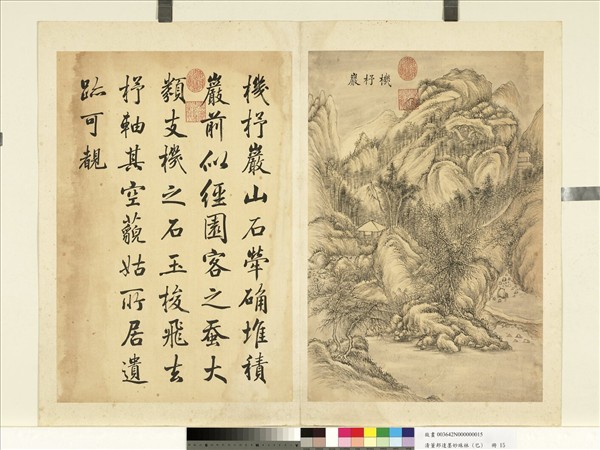 機杼巖
機杼巖山石犖确堆積
巖前似經園客之蚕大
類支機之石玉梭飛去
杼軸其空藐姑所居遺
跡可覩
故畫 003642N000000015
清董邦達墨妙珠林（巳） 冊 15